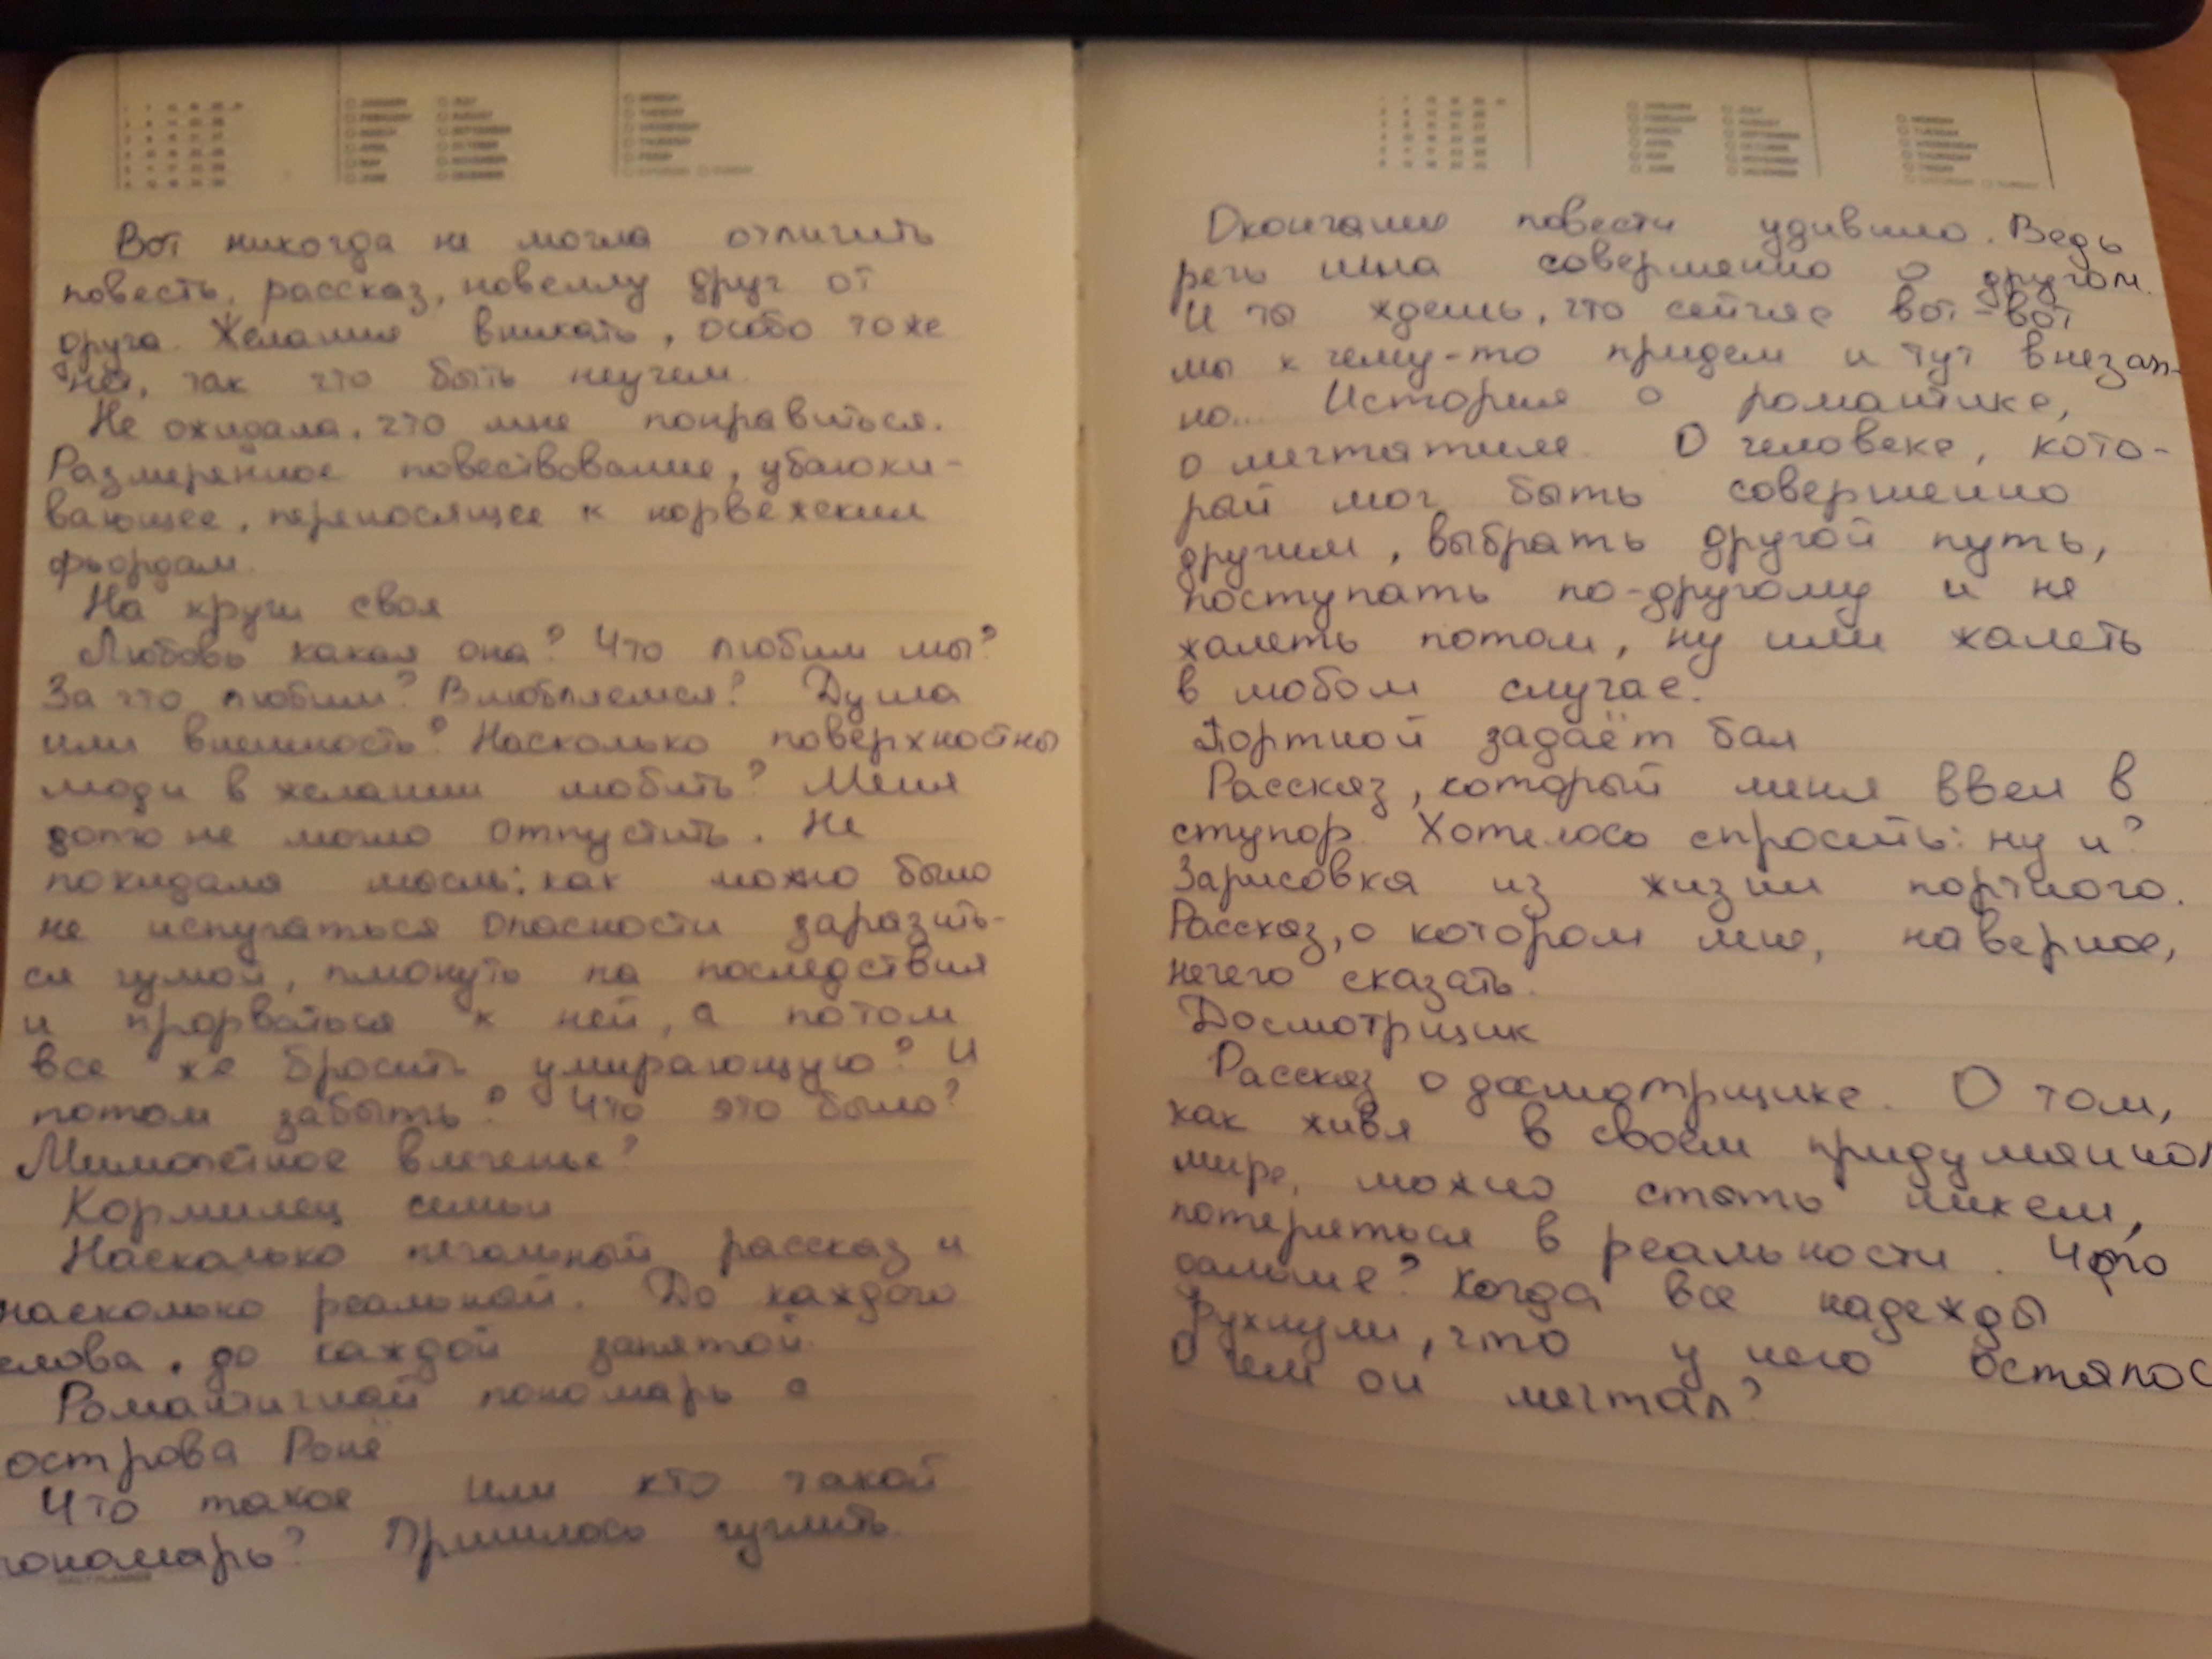 Вот никогда не могла отличить
повесть, рассказ, новеллу друг от
друга. Желания вникать, особо тоже
нет, так что быть неучем.
Не ожидала, что мне понравиться.
Размеренное повествование, убаюки-
вающее, переносящее к норвежским
фьордам.
На круги своя
Любовь какая она? Что любим мы?
За что любим? Влюбляемся? Душа
или внешность? Насколько поверхностны
люди в желании любить? Меня
долго не могло отпустить. Не
покидала мысль: как можно было
не испугаться опасности заразить-
ся чумой, плюнуть на последствия
и прорваться к ней, а потом
все же бросить умирающую? И
потом забыть? Что это было?
Мимолётное влеченье?
Кормилец семьи
Насколько печальный рассказ и
насколько реальный. До каждого
слова, до каждой запятой.
Романтичный пономарь с
острова Ронё
Что такое или кто такой
пономарь? Пришлось гуглить.
Окончание повести удивило. Ведь
речь шла совершенно о другом.
И ты ждешь, что сейчас вот-вот
мы к чему-то придем и тут внезап-
но... История о романтике,
о мечтателе. О человеке, кото-
рый мог быть совершенно
другим, выбрать другой путь,
поступать по-другому и не
жалеть потом, ну или жалеть
в любом случае.
Портной задаёт бал
Рассказ, который меня ввел в
ступор. Хотелось спросить: ну и?
Зарисовка из жизни портного.
Рассказ, о котором мне, наверное,
нечего сказать.
Досмотрщик
Рассказ о досмотрщике. О том,
как живя в своем придуманном
мире, можно стать никем,
потеряться в реальности.
дальше? Когда все надежды
рухнули, что у него осталос
О чем он мечтал?